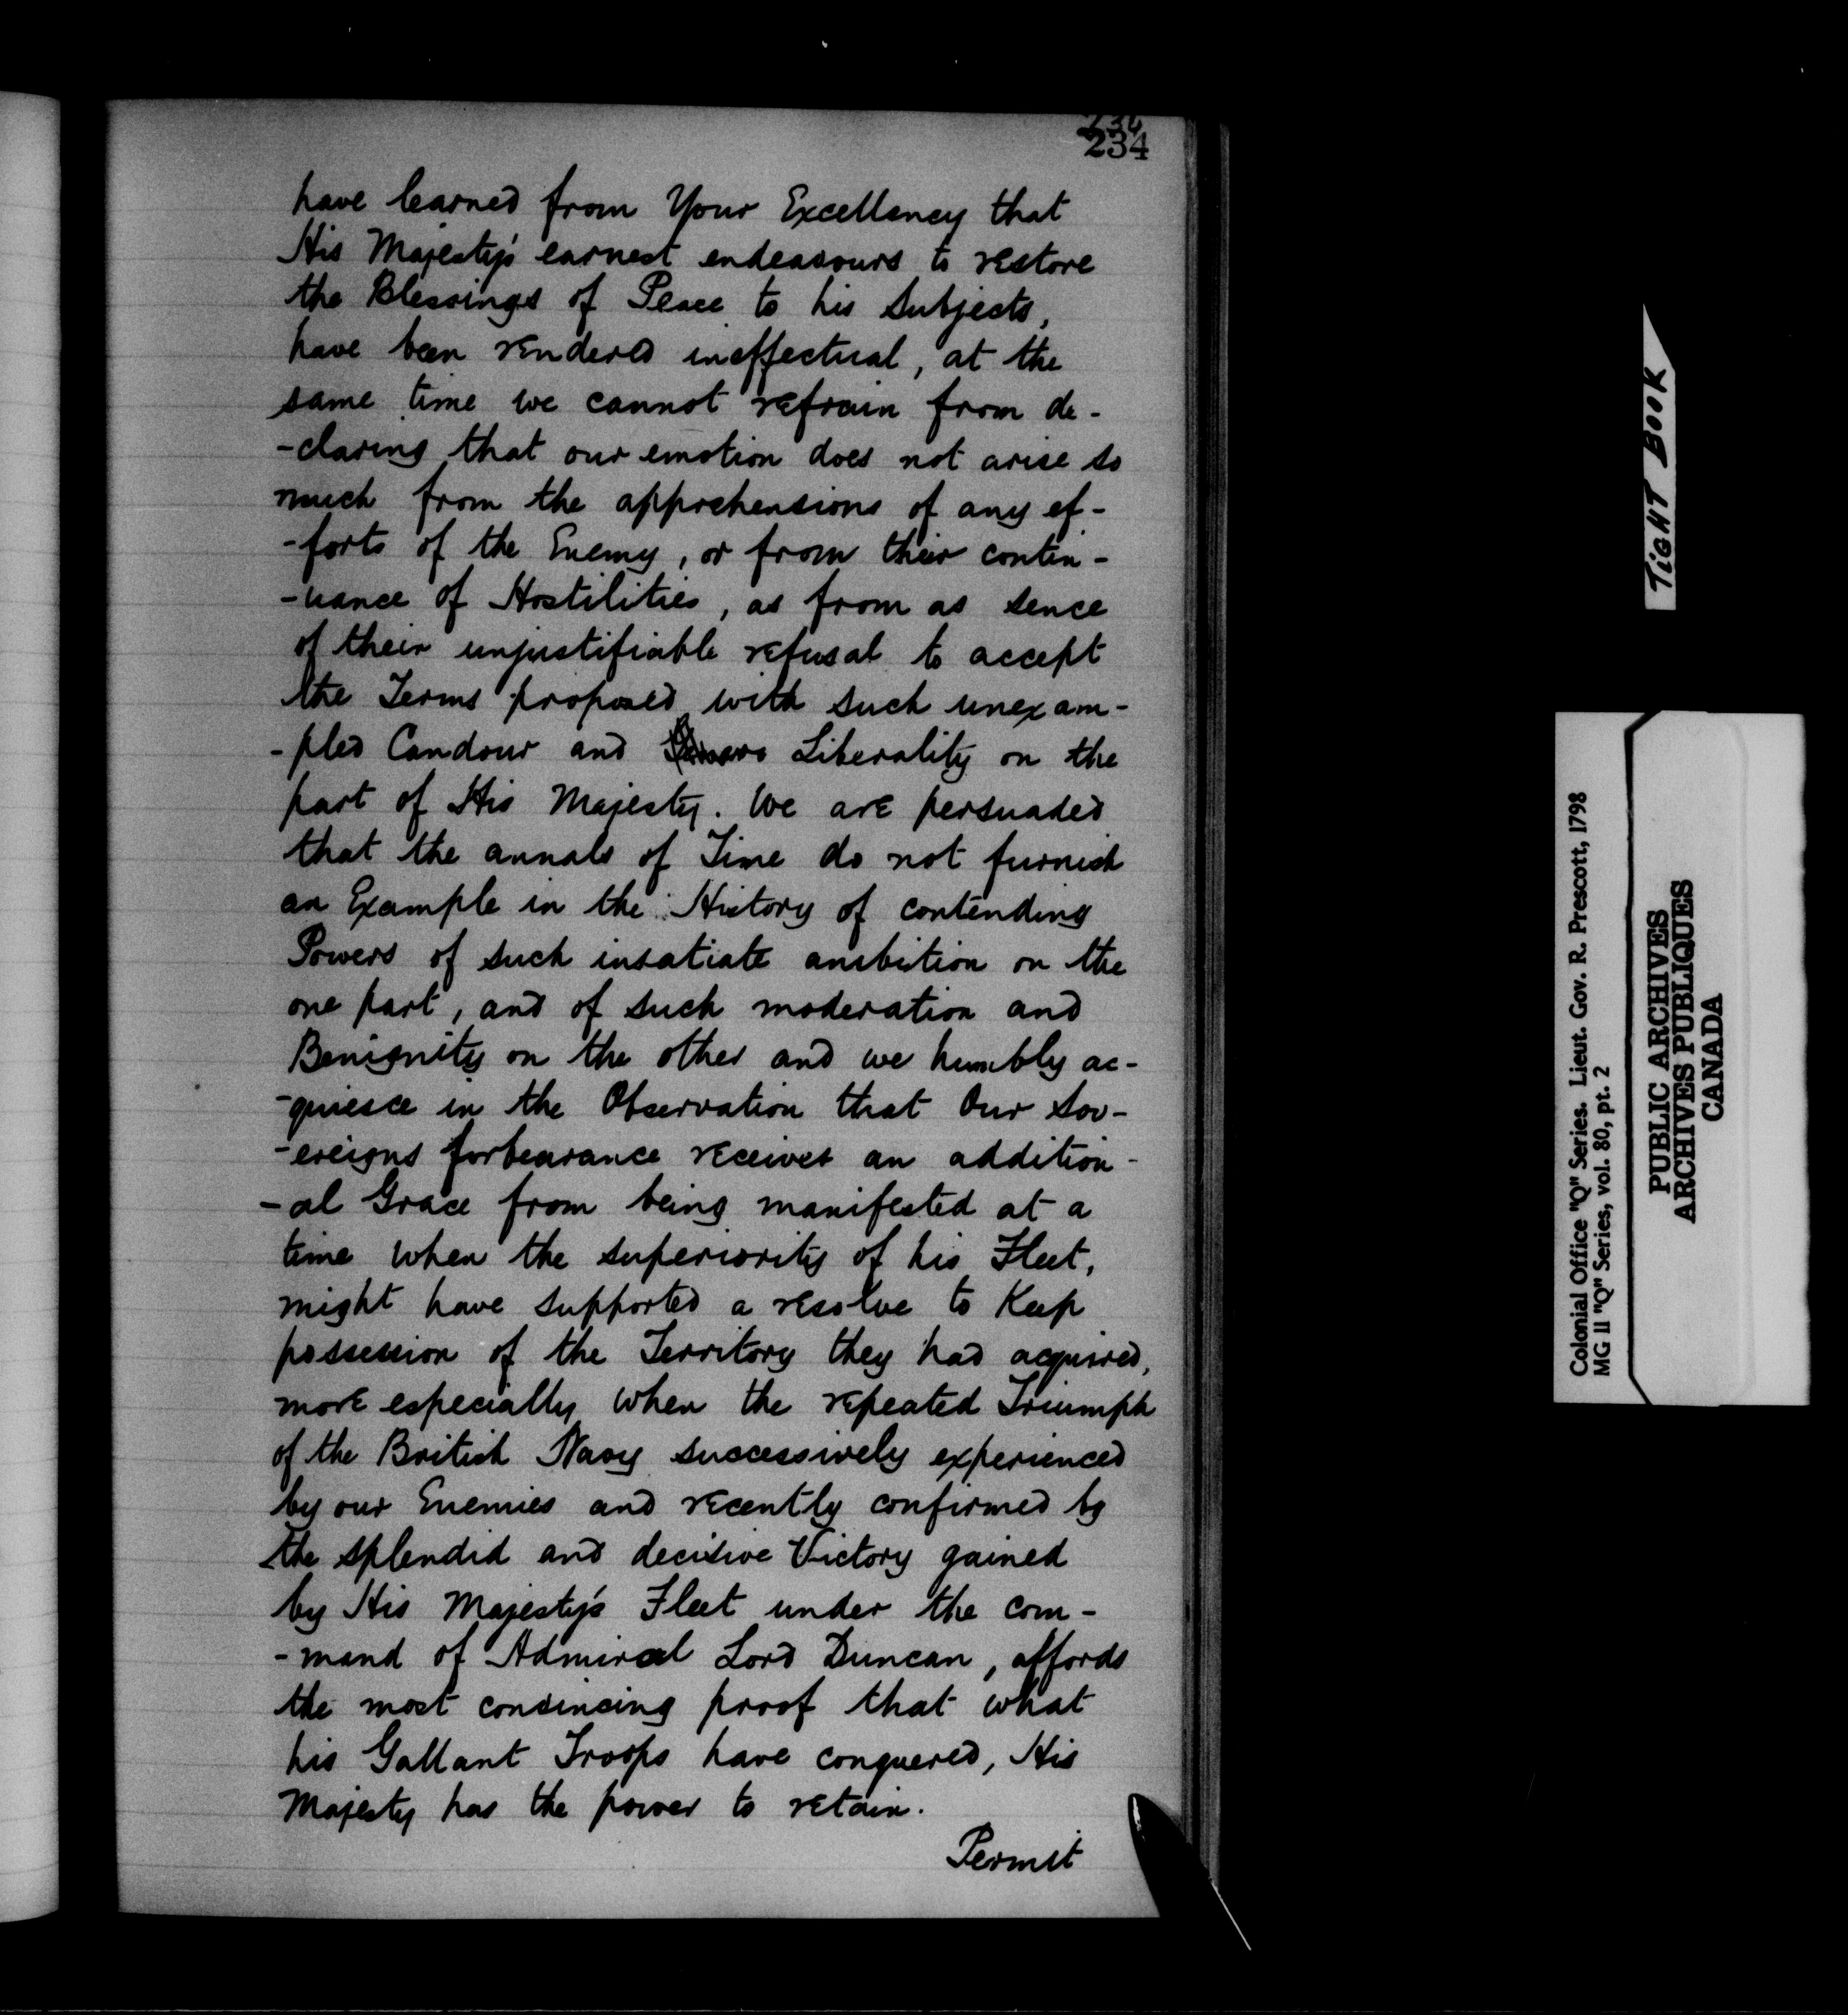 234
have learned from Your Excellency that
His Majesty's earnest endeavours to restore
the Blessings of Peace to his Subjects,
have been rendered ineffectual, at the
same time we cannot refrain from de-
-claring that our emotion does not arise so
much from the apprehensions of any ef-
-forts of the Enemy, or from their contin-
-uance of Hostilities, as from as sence
of their unjustifiable refusal to accept
the Terms proposed with such unexam-
-pled Candour and Liberality on the
part of His Majesty. We are persuaded
that the annals of Time do not furnish
an Example in the History of contending
Powers of such insatiate ambition on the
one part, and of such moderation and
Benignity on the other and we humbly ac-
-quiesce in the Observation that Our Sov-
-ereigns forbearance receives an addition-
-al Grace from being manifested at a
time when the superiority of his Fleet,
might have supported a resolve to Keep
possession of the Territory they had acquired,
more especially when the repeated Triumph
of the British Navy successively experienced
by our Enemies and recently confirmed by
the splendid and decisive Victory gained
by His Majesty's Fleet under the com-
-mand of Admiral Lord Duncan, affords
the most convincing proof that what
his Gallant Troops have conquered, His
Majesty has the power to retain.
Permit
TIGHT BOOK
Colonial Office "Q" Series. Lieut. Gov. R. Prescott, 1798
MG 11 "Q" Series, vol. 80, pt. 2
PUBLIC ARCHIVES
ARCHIVES PUBLIQUES
CANADA